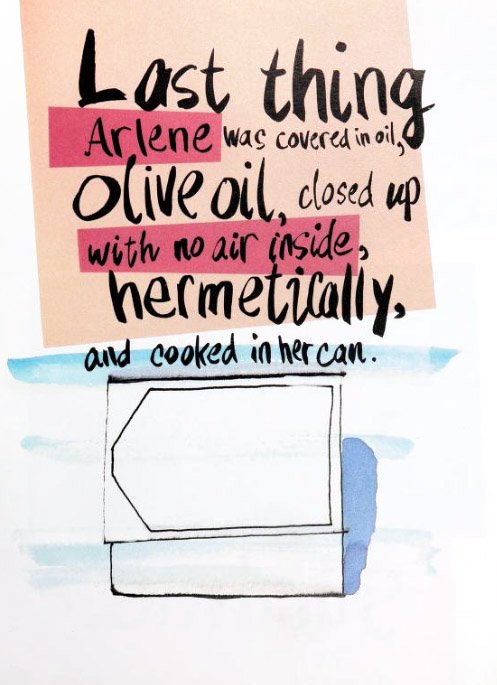 Last thing
Arlene was covered in oil,
olive oil, closed up
with no air inside,
hermetically,
and cooked in her can.